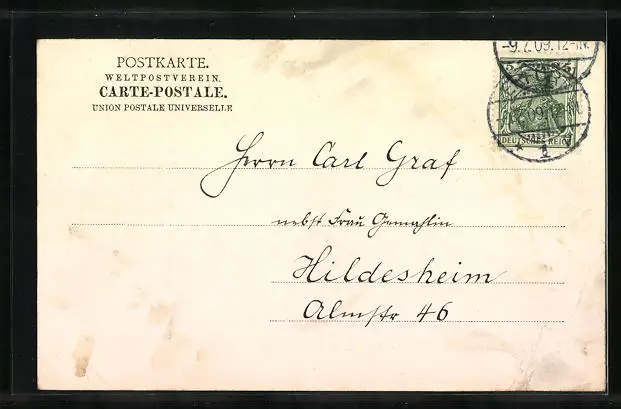 POSTKARTE.
WELTPOSTVEREIN.
CARTE-POSTALE.
UNION POSTALE UNIVERSELLE
-9.7.09.12-1N.
DEUTSCHES REICH
Herrn Carl Graf
nebst Frau Gemahlin
Hildesheim
Almstr 46